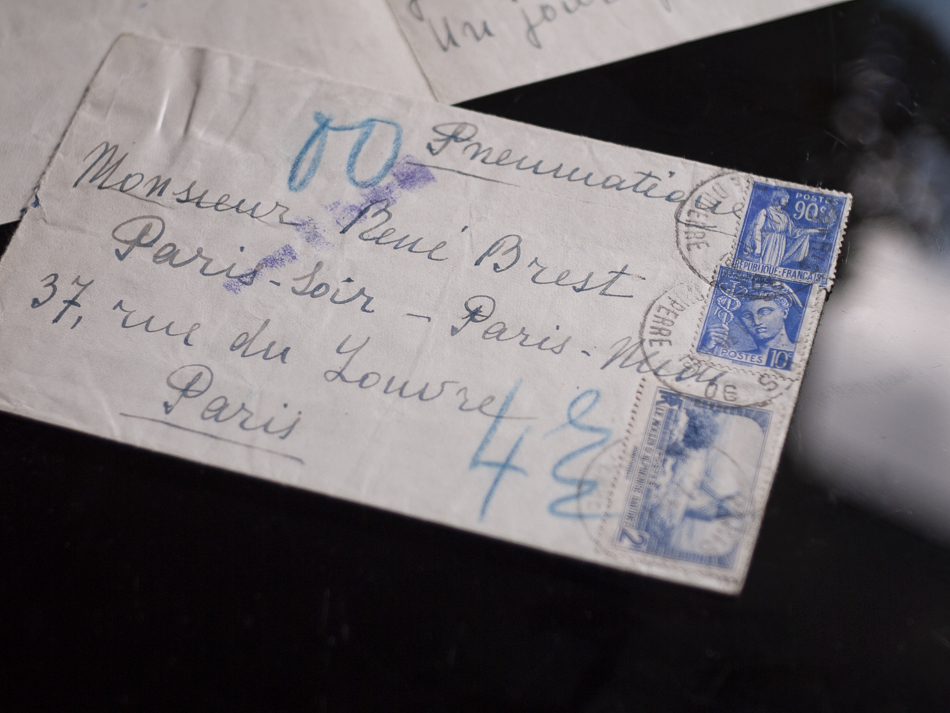 Un jour
00
Pneumatique
Monsieur René Brest
Paris-Soir – Paris-Midi
37, rue du Louvre
Paris
4E
POSTES
90c
REPUBLIQUE FRANÇAISE
POSTES 10c
06
2F